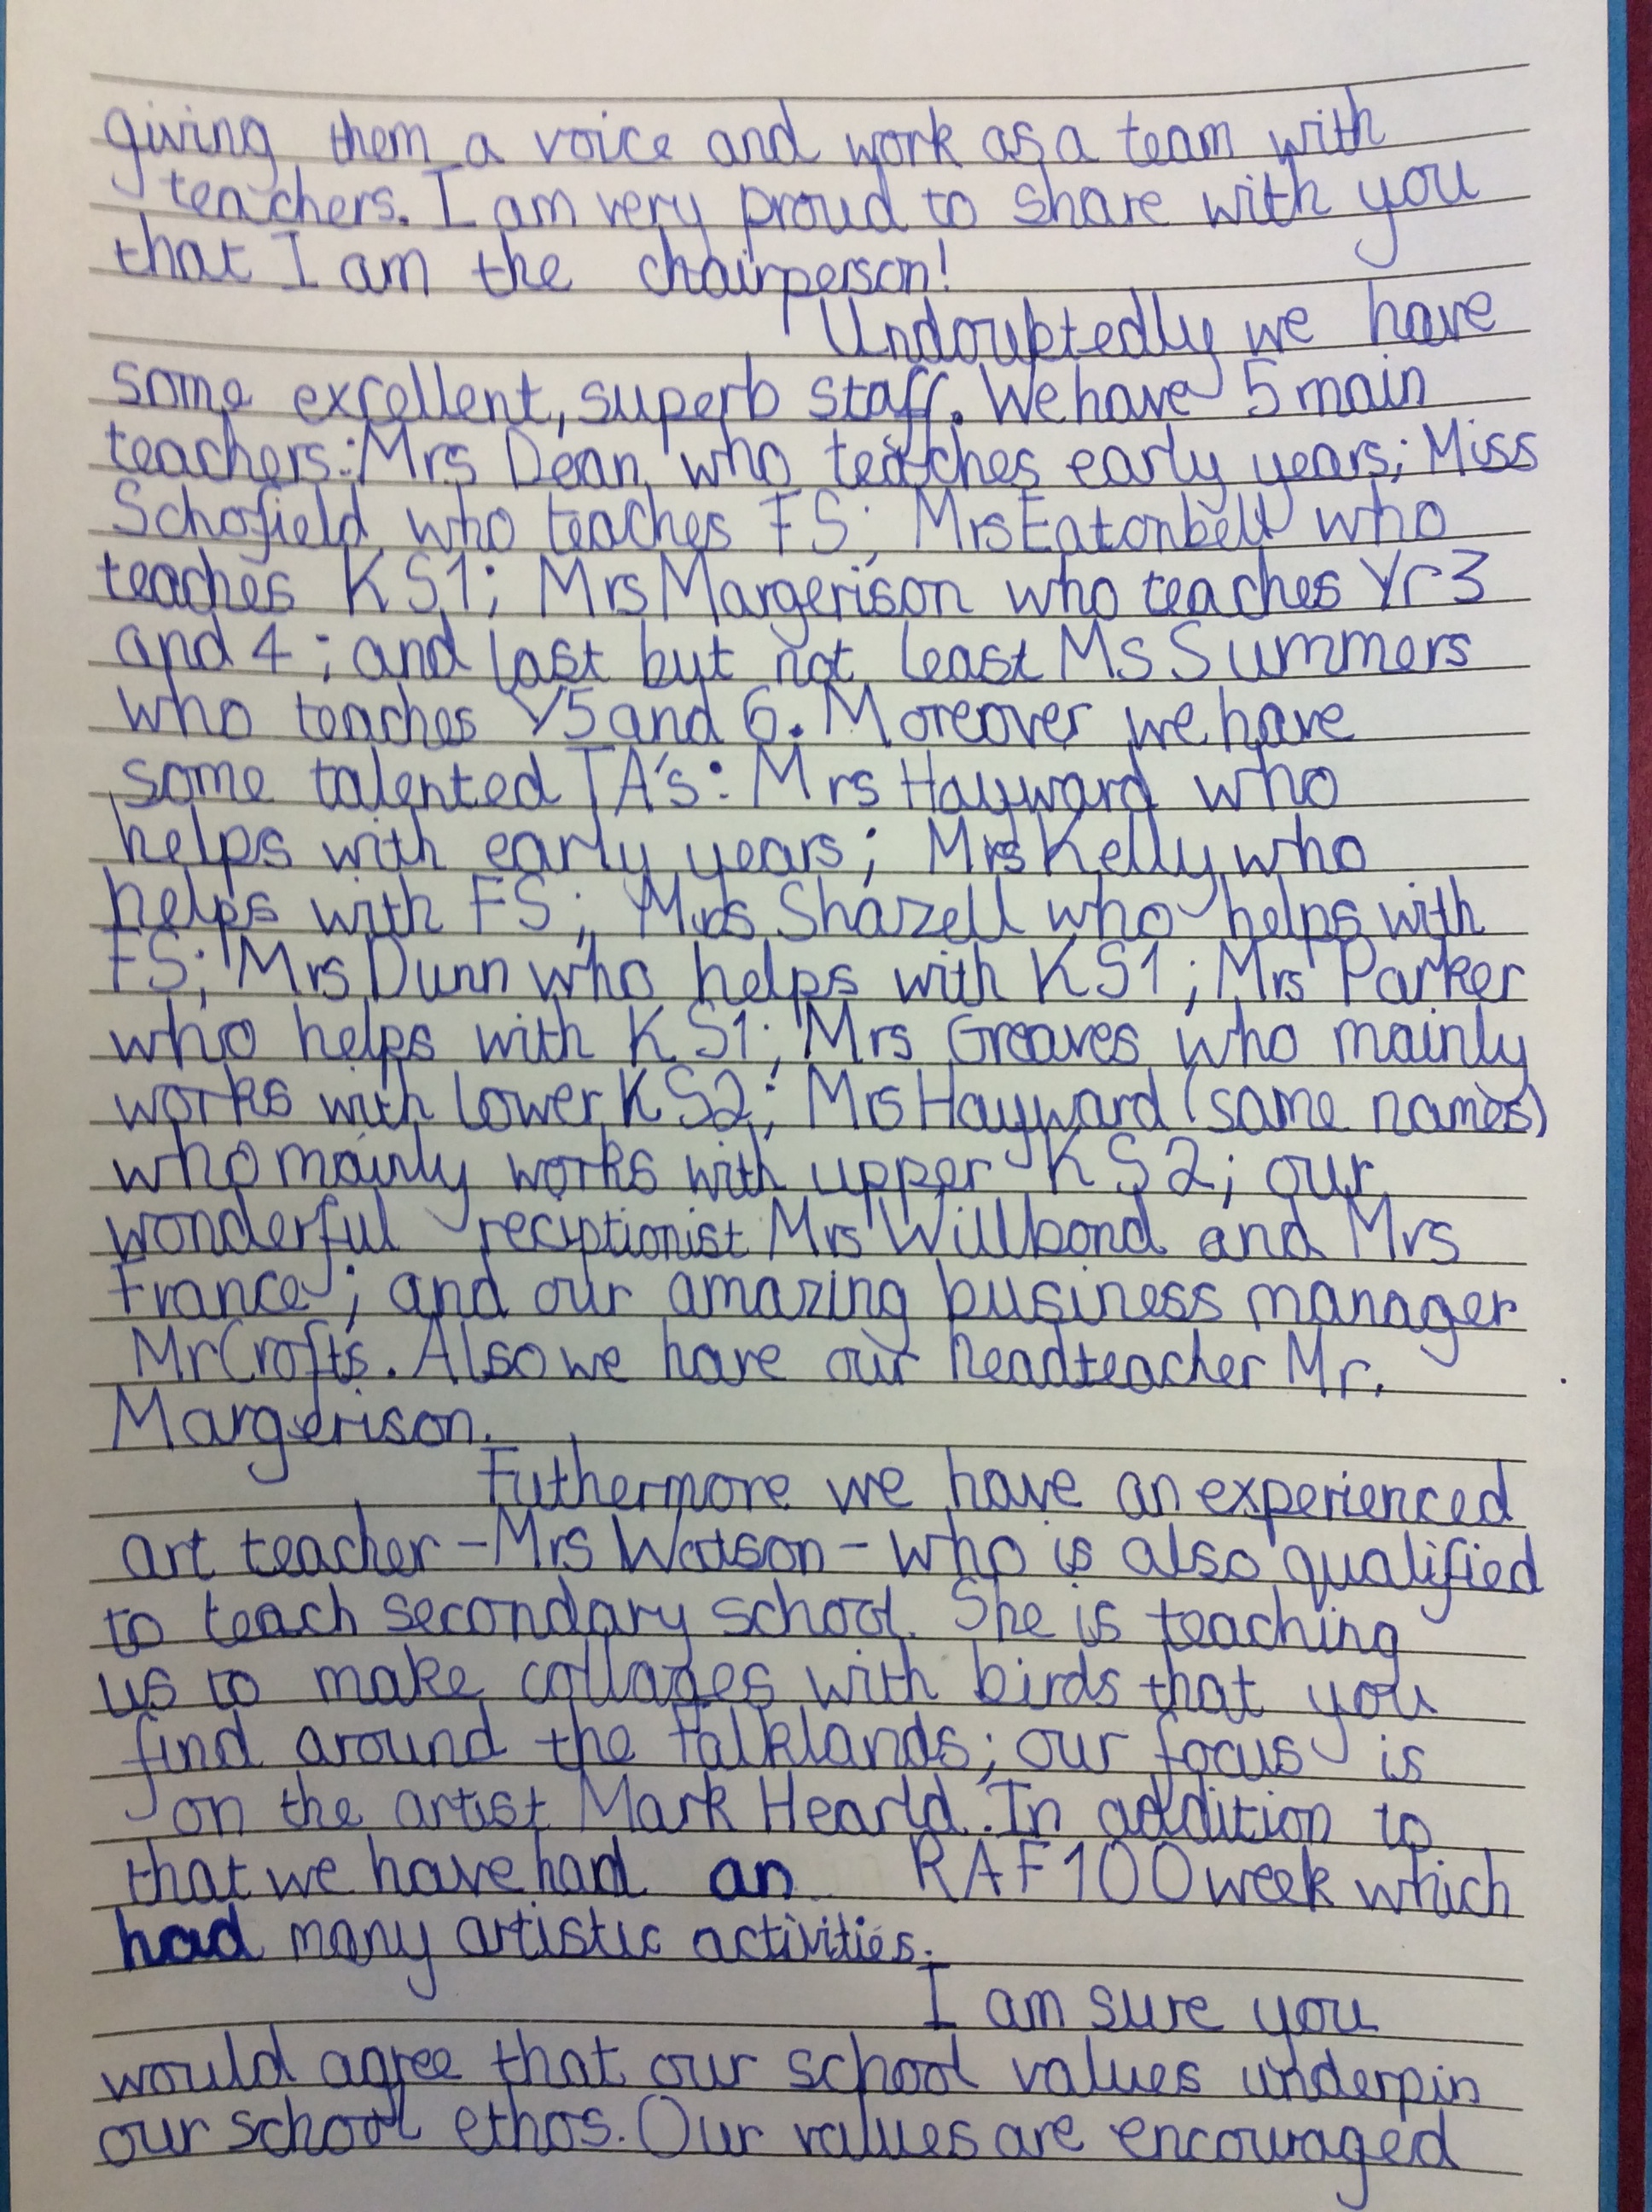 giving them a voice and work as a team with
teachers. I am very proud to share with you
that I am the chairperson!
Undoubtedly we have
some excellent, superb staff. We have 5 main
teachers: Mrs Dean who teaches early years; Miss
Schofield who teaches FS; Mrs Eatonbell who
teaches KS1; Mrs Margerison who teaches Yr 3
and 4; and last but not least Ms Summers
who teaches Y5 and 6. Moreover we have
some talented TA's: Mrs Hayward who
helps with early years; Mrs Kelly who
helps with FS; Mrs Shazell who helps with
FS; Mrs Dunn who helps with KS1; Mrs Parker
who helps with KS1; Mrs Greaves who mainly
works with lower KS2; Mrs Hayward (same names)
who mainly works with upper KS2; our
wonderful reciptionist Mrs Willbond and Mrs
France; and our amazing business manager
Mr Crofts. Also we have our headteacher Mr.
Margerison.
Futhermore we have an experienced
art teacher - Mrs Watson - who is also qualified
to teach secondary school. She is teaching
us to make collages with birds that you
find around the Falklands; our focus is
on the artist Mark Hearld. In addition to
that we have had an RAF100 week which
had many artistic activities.
I am sure you
would agree that our school values underpin
our school ethos. Our values are encouraged